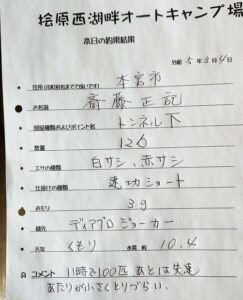 桧原西湖畔オートキャンプ場
本日の釣果結果
令和 5年3月4日
住所(市町村名までで良いです) 本宮市
お名前 斉藤正記
部屋種類およびポイント名 トンネル下
数量 126
エサの種類 白サシ、赤サシ
仕掛けの種類 速功ショート
おもり 3g
穂先 ディアブロジョーカー
天気 くもり 水深 約 10.4
コメント 11時で100匹 あとは失速
あたりが小さくとりづらい。